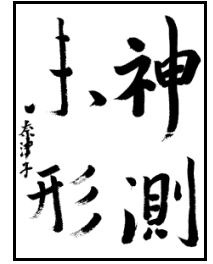 神測
未形
奈津子